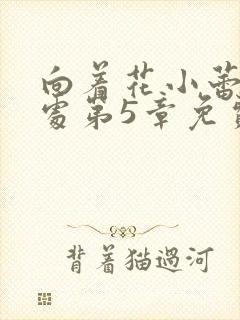 向着花小蕾
处第5章免
背着猫過河